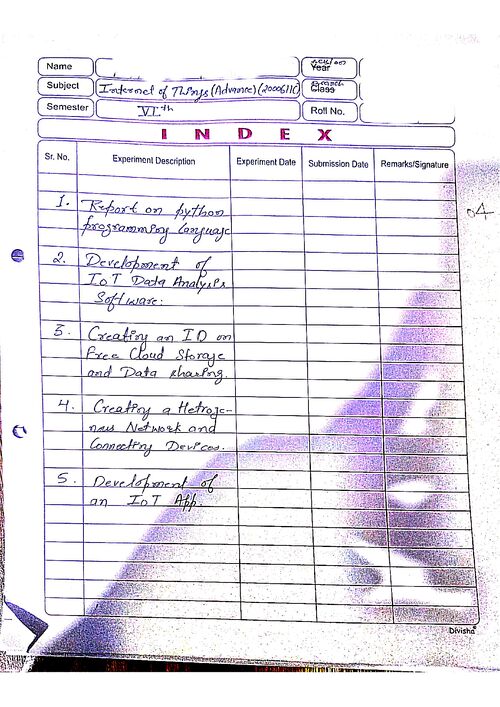 Name
Section
Year
Subject
Internet of Things (Advance) (2000611C)
Branch
Class
Semester
VI th
Roll No.
INDEX
Sr. No. Experiment Description Experiment Date Submission Date Remarks/Signature
1. Report on python
programming language
04
2. Development of
IoT Data Analysis
Software.
3. Creating an ID on
Free Cloud Storage
and Data sharing.
4. Creating a Hetroge-
neus Network and
Connecting Devices.
5. Development of
an IoT App.
Divisha